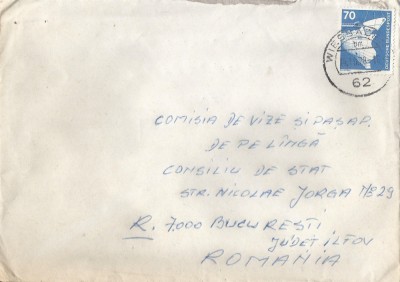 70
DEUTSCHE BUNDESPOST
WIESBADEN
bm
62
COMISIA DE VIZE ȘI PAȘAP.
DE PE LÎNGĂ
CONSILIU DE STAT
STR. NICOLAE JORGA Nº 29
R. 7000 BUCUREȘTI
JUDEȚ ILFOV
ROMANIA